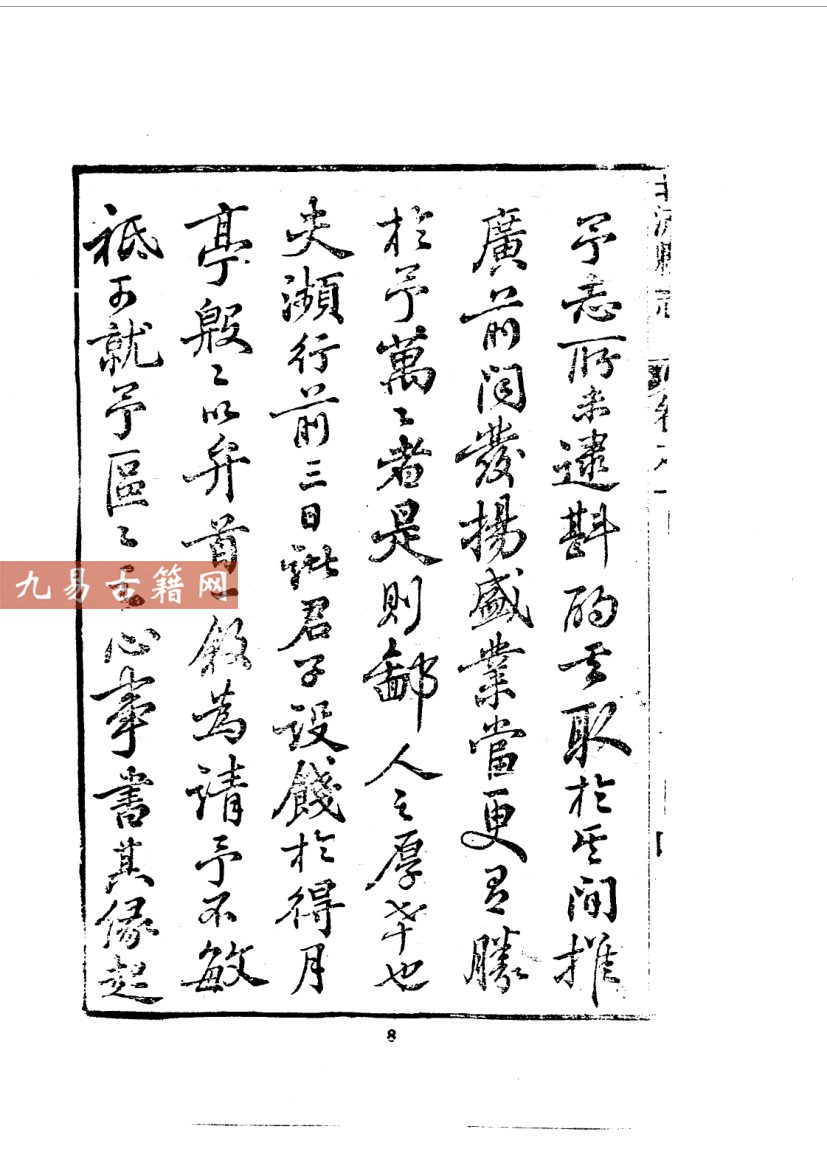 予志所未逮斟酌去取於其間推
廣前聞發揚盛業當更有勝
於予萬〻者是則鄙人之厚幸也
夫瀕行前三日諸君子設餞於得月
亭殷〻以弁首一敘為請予不敏
祗可就予區〻之心事書其緣起
九易古籍网
8